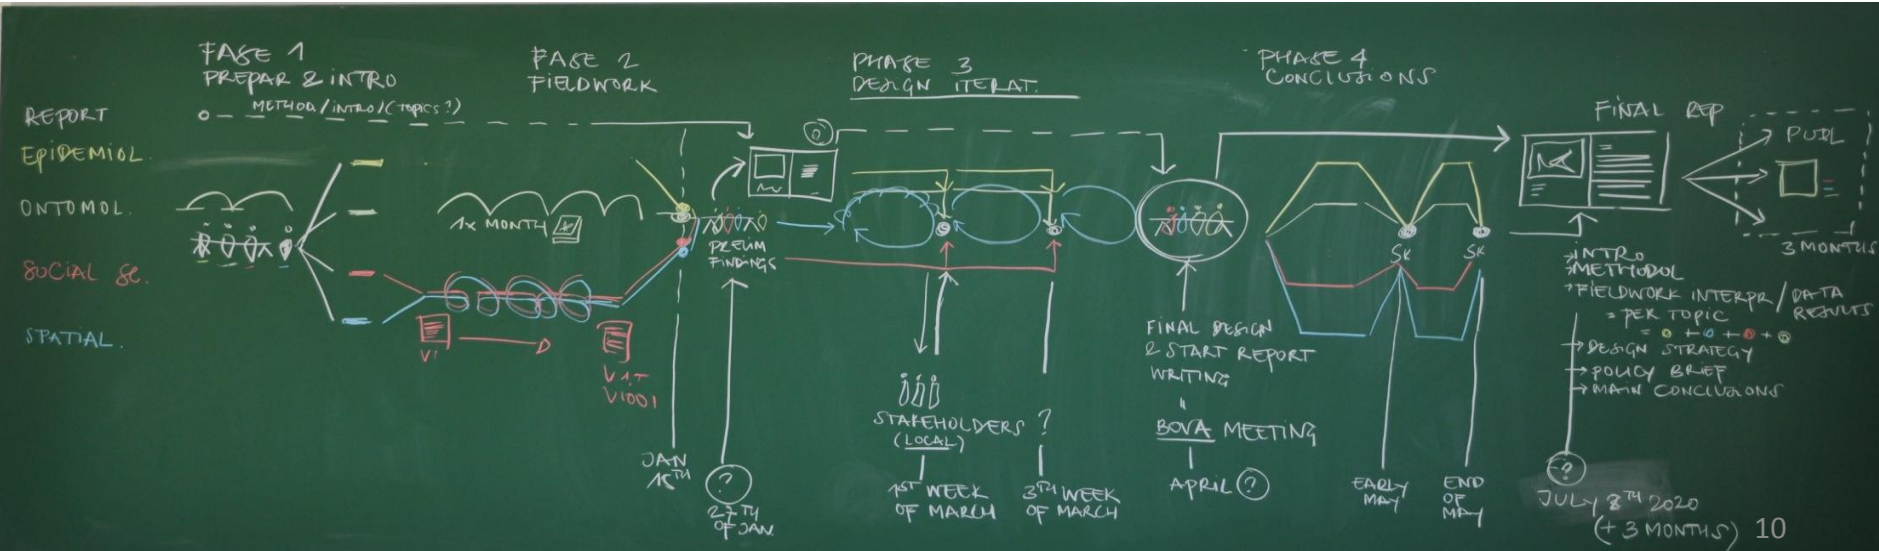 FASE 1
PREPAR & INTRO
FASE 2
FIELDWORK
PHASE 3
DESIGN ITERAT.
PHASE 4
CONCLUSIONS
REPORT
METHOD/INTRO/(TOPICS?)
EPIDEMIOL.
ONTOMOL.
SOCIAL SC.
SPATIAL.
1x MONTH
V1
V1T
V1001
PRELIM
FINDINGS
JAN
15TH
?
27TH
OF JAN.
STAKEHOLDERS
(LOCAL)
1ST WEEK
OF MARCH
?
3TH WEEK
OF MARCH
FINAL DESIGN
& START REPORT
WRITING
"
BOVA MEETING
APRIL ?
SK
SK
EARLY
MAY
END
OF
MAY
FINAL REP
PUBL
3 MONTHS
INTRO
METHODOL
FIELDWORK INTERPR/DATA
RESULTS
= PER TOPIC
= + + +
DESIGN STRATEGY
POLICY BRIEF
MAIN CONCLUSIONS
?
JULY 8TH 2020
(+ 3 MONTHS)
10